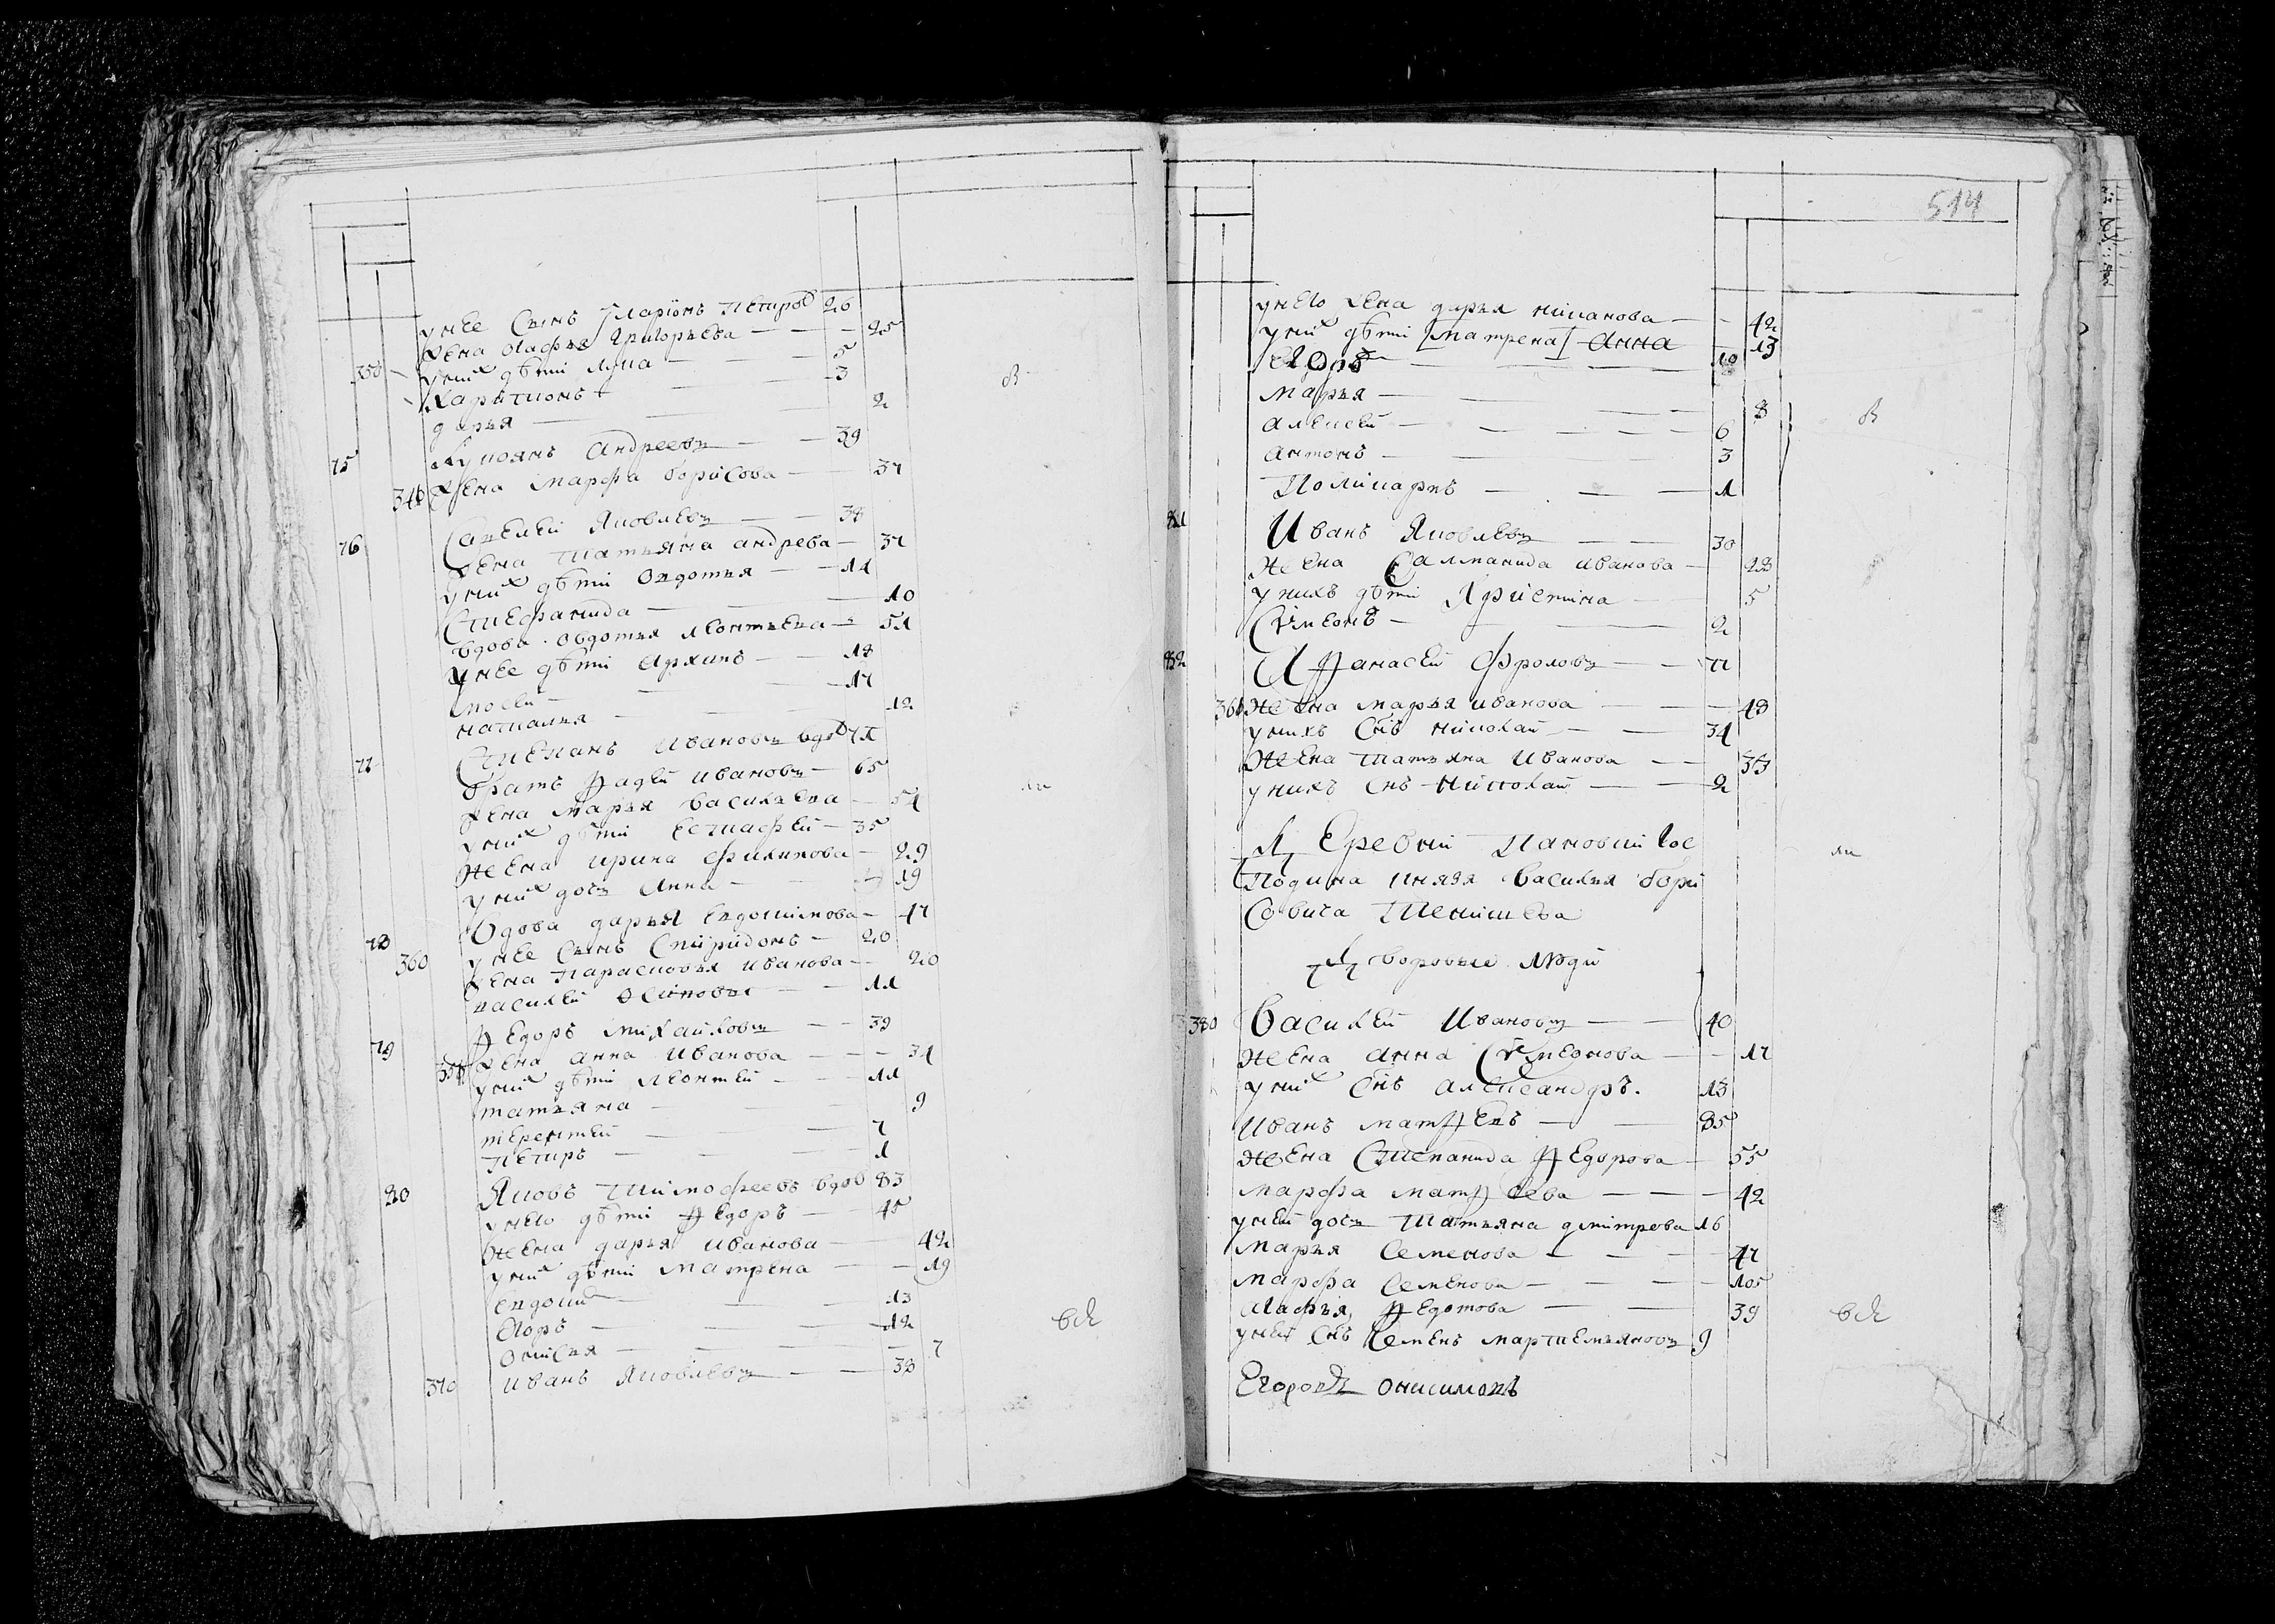 у нее сынъ Иларионъ Петров 26
жена Агафья Григорьева 25
358 у них дѣти Лука 5
Харитонъ 3
дарья 2
75 Купоянъ Андреевъ 39
346 жена Марфа борисова 37
76 Савелей Яковлевъ 38
жена Татьяна андрева 37
у них дѣти Овдотья 14
Стефанида 10
вдова Овдотья леонтьева 51
у нее дѣти Архипъ 18
мосей 17
наталья 12
77 Степанъ Ивановъ вдов 71
братъ Фадей Ивановъ 65
жена Марья васильева 54
у них дѣти Естафей 35
жена ирина филипова 29
у них дочь Анна 19
78 Вдова дарья Евдокимова 47
у нее сынъ Спиридонъ 20
360 жена Парасковья Иванова 20
василей Осиповъ 11
79 Федоръ михайловъ 39
жена анна Иванова 34
у них дѣти леонтей 11
татьяна 9
терентей 7
Петръ 1
80 Яковъ Тимофеевъ вдов 83
у него дѣти Федоръ 45
жена дарья иванова 42
у них дѣти Матрена 19
евдоким 13
Егоръ 12
Аксинья 7
370 иванъ Яковлевъ 38
514
у него жена дарья никанова 42
у них дѣти Матрена Анна 13
Егоръ 10
марья 8
алексей 6
антонъ 3
Поликарпъ 1
81 Иванъ Яковлевъ 30
жена Саламанида иванова 28
у нихъ дѣти Христина 5
Симеонъ 2
82 Афанасей Фроловъ 77
368 жена марья иванова 48
у нихъ снъ николай 34
жена татьяна Иванова 33
у нихъ снъ Николай 2
Деревни Пановки Гос
Подина князя Василья бори
Совича Тенишева
Дворовые люди
380 Василей Ивановъ 40
жена анна Симеонова 17
у них снъ александръ 13
Иванъ матфевъ 85
жена Степанида Федорова 55
марфа матфеева 42
у ней дочь Татьяна дмитрева 16
марья семенова 47
марфа семенова 105
Агафья Федотова 39
у ней снъ семенъ мартемьяновъ 9
Егоровъ онисимовъ